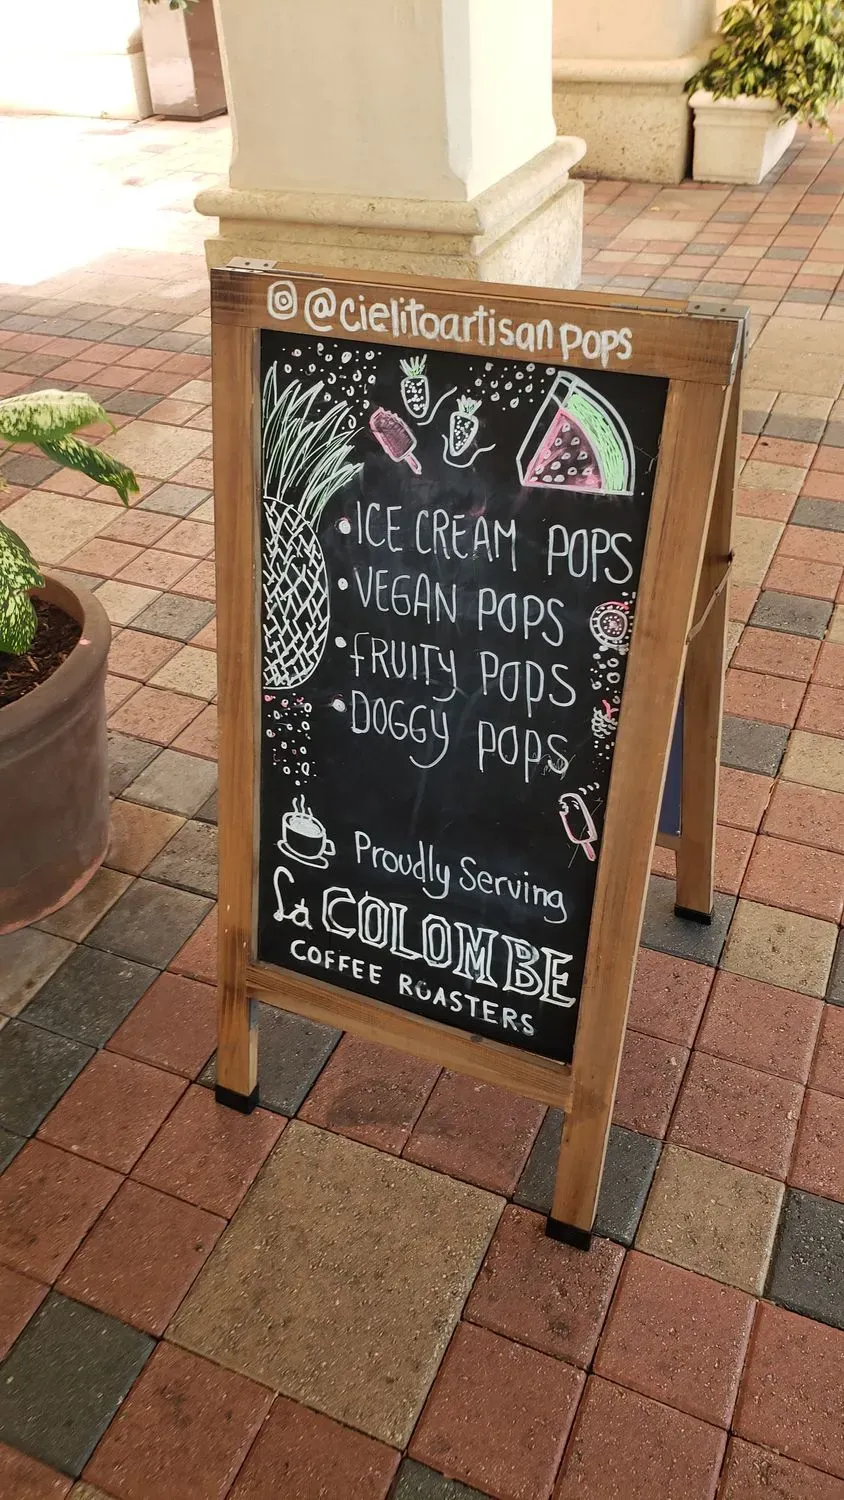 @cielitoartisanpops
• ICE CREAM POPS
• VEGAN POPS
• FRUITY POPS
• DOGGY POPS
Proudly Serving
La COLOMBE
COFFEE ROASTERS